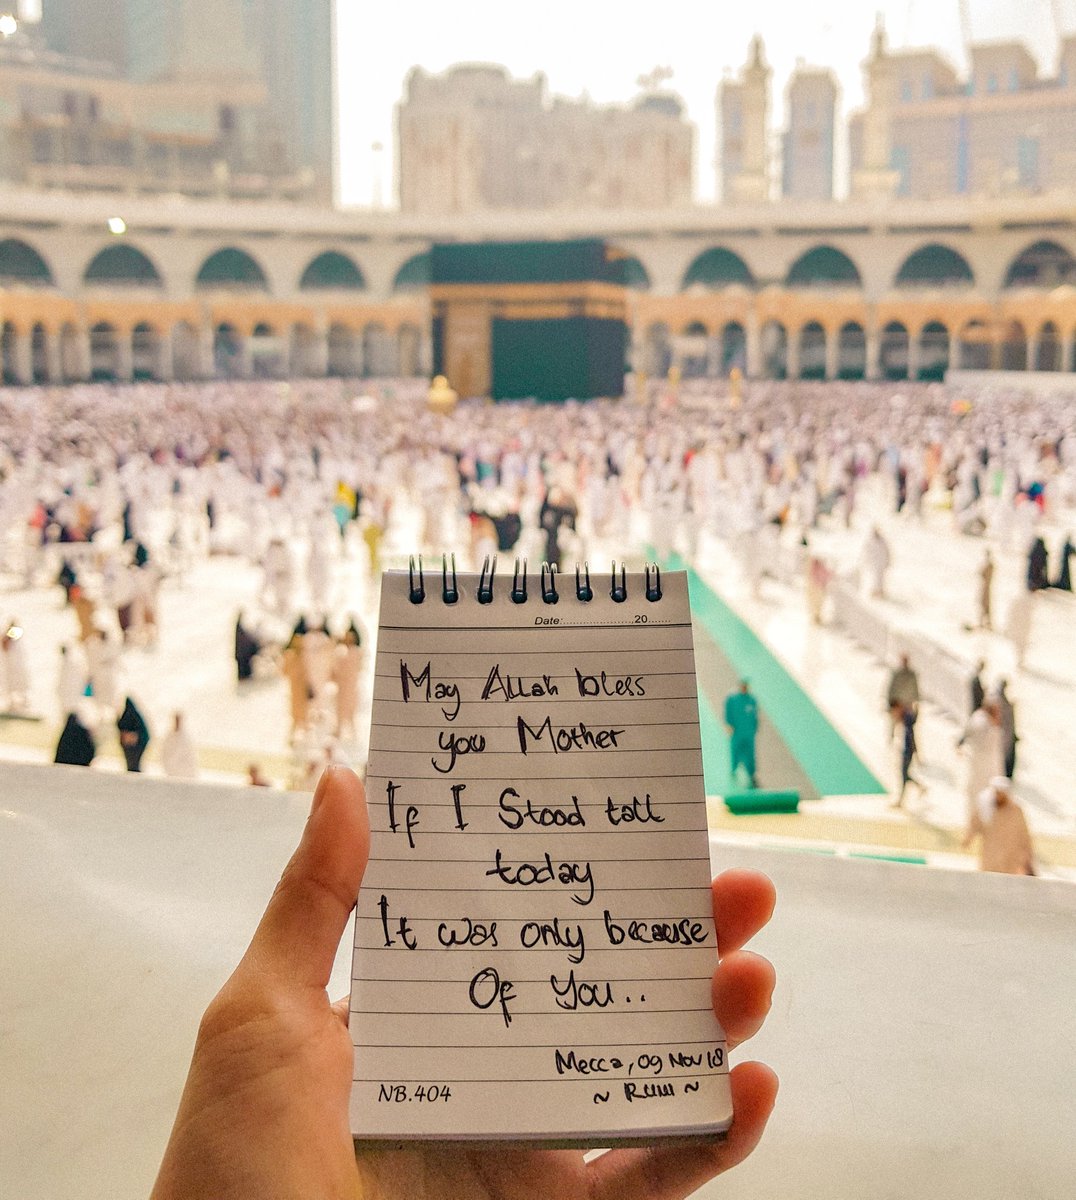 Date:......................,20.......
May Allah bless
you Mother
If I Stood tall
today
It was only because
Of You..
Mecca, 09 Nov 18
NB.404